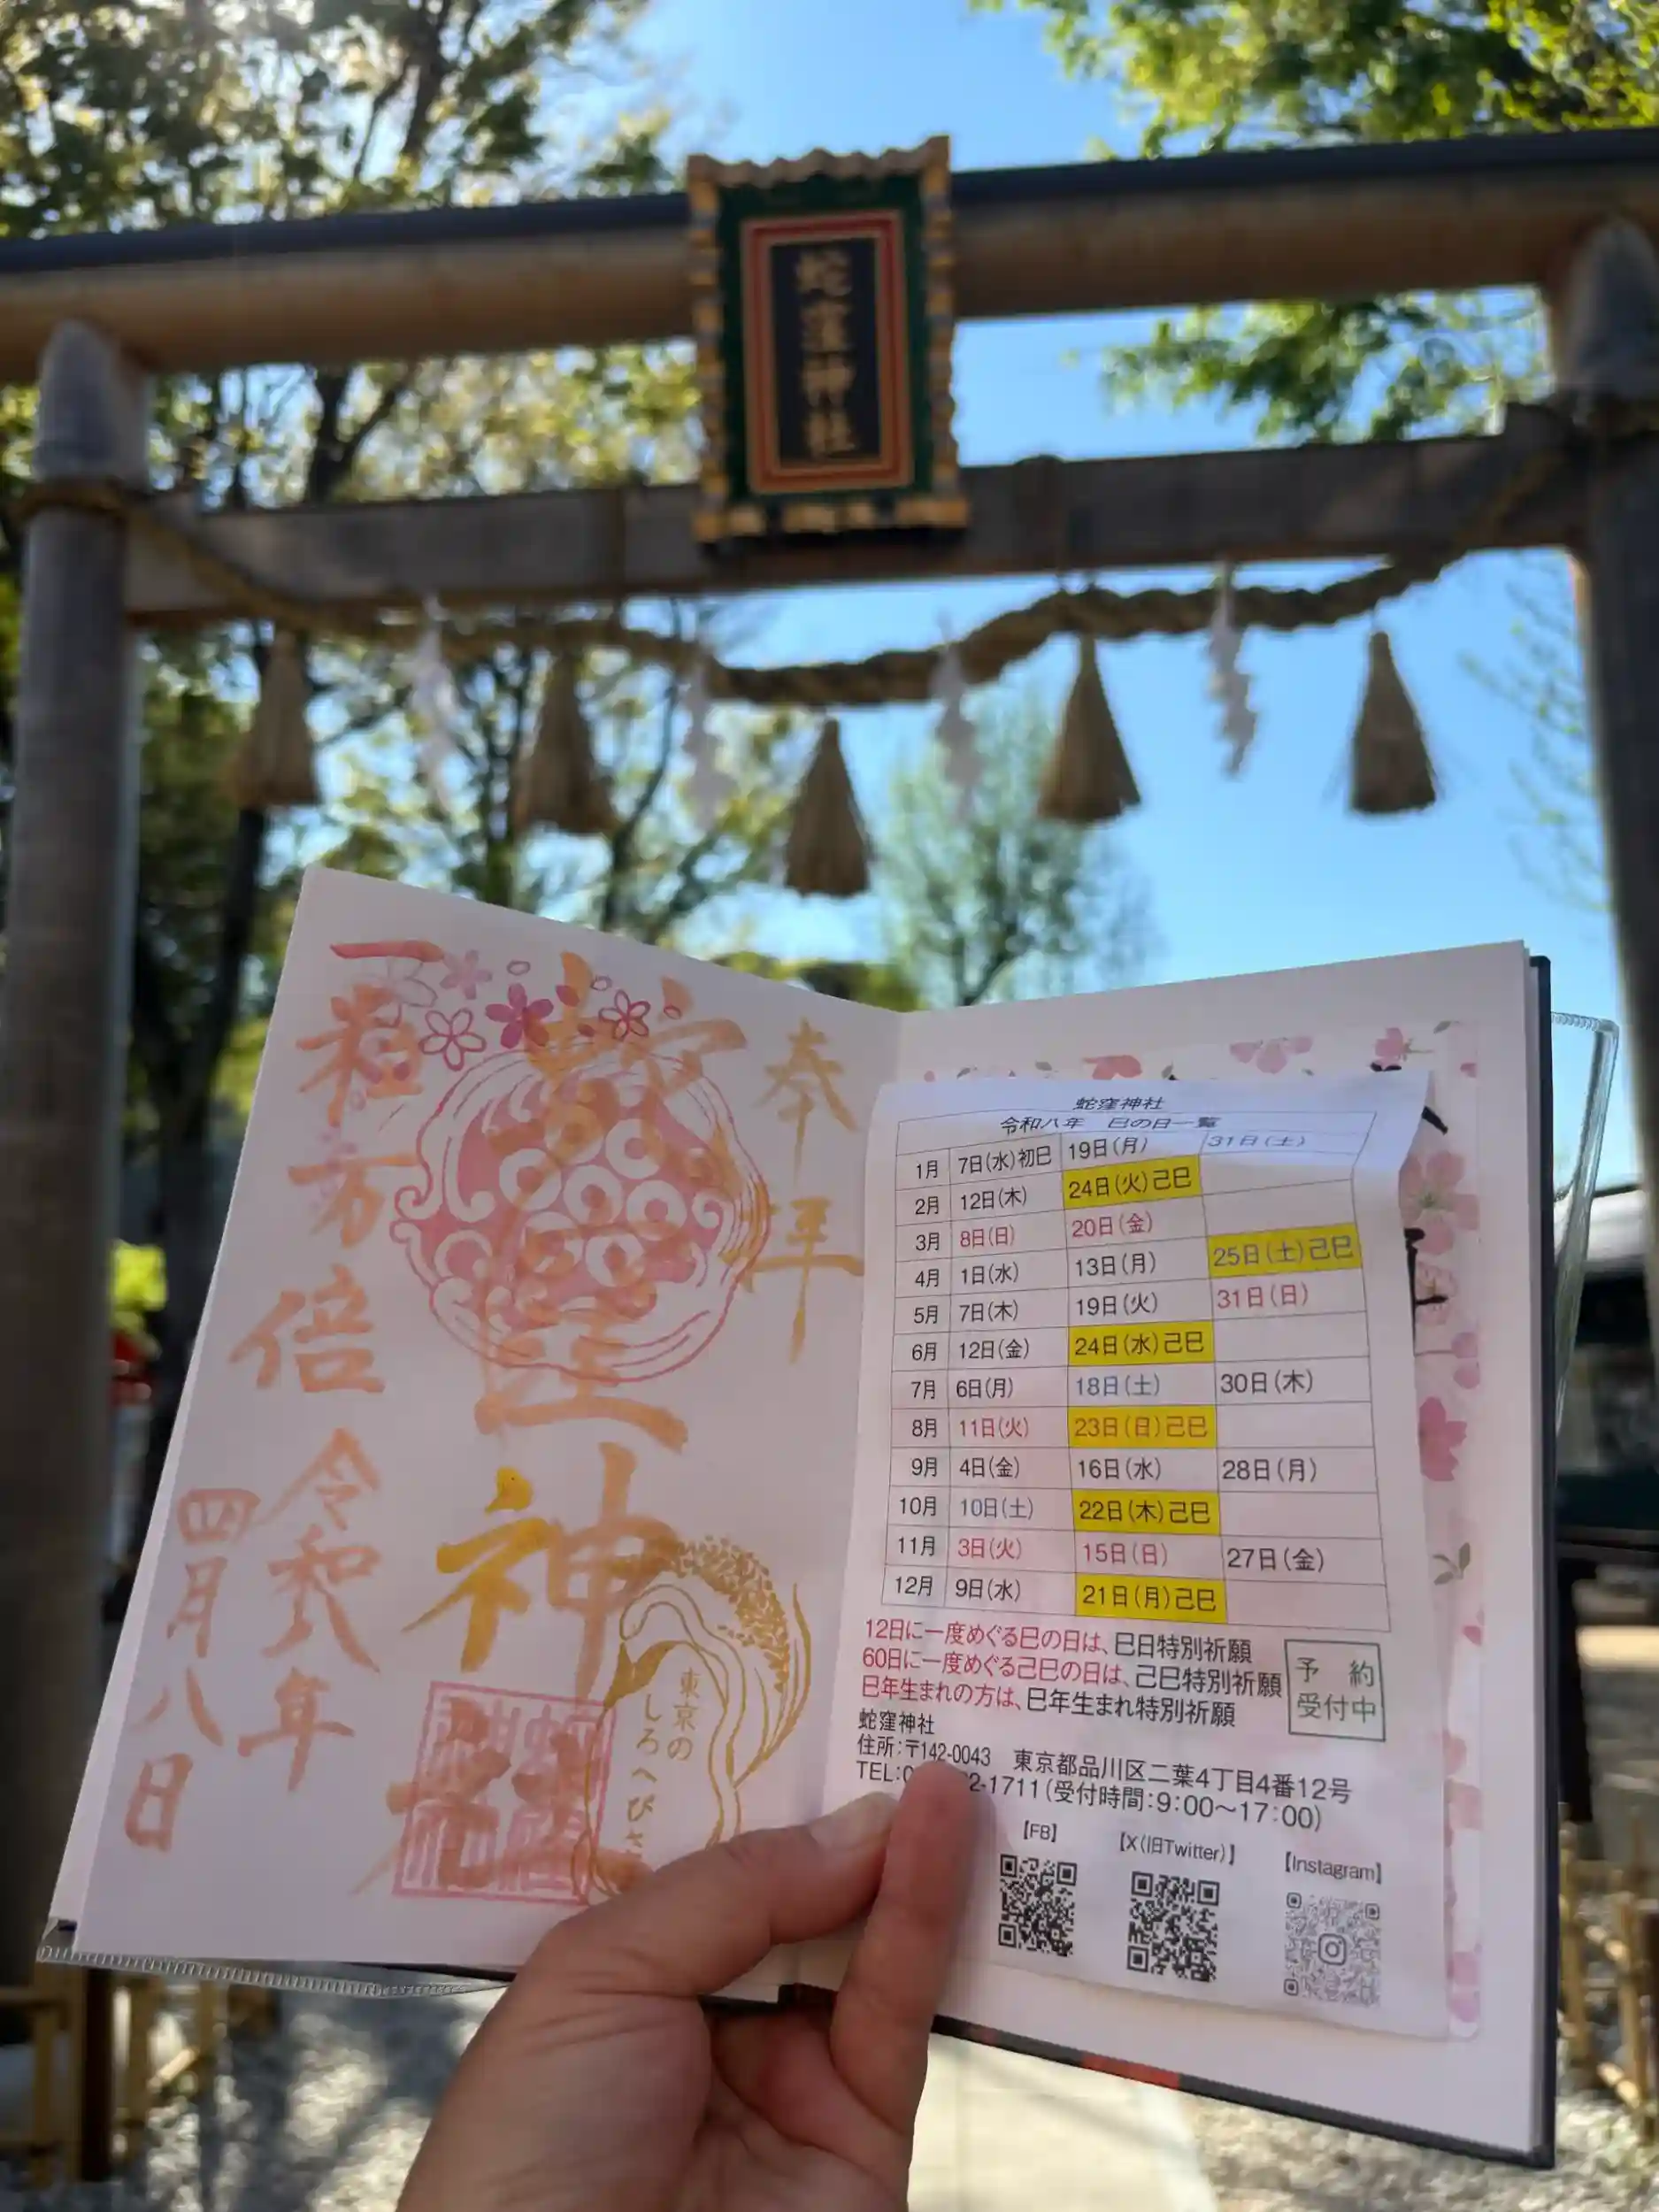 蛇窪神社
奉拝
蛇窪神社
一粒万倍
令和八年
四月八日
東京の
しろへびさ
蛇窪神社
令和八年 巳の日一覧
1月 7日(水)初巳 19日(月) 31日(土)
2月 12日(木) 24日(火)己巳
3月 8日(日) 20日(金)
4月 1日(水) 13日(月) 25日(土)己巳
5月 7日(木) 19日(火) 31日(日)
6月 12日(金) 24日(水)己巳
7月 6日(月) 18日(土) 30日(木)
8月 11日(火) 23日(日)己巳
9月 4日(金) 16日(水) 28日(月)
10月 10日(土) 22日(木)己巳
11月 3日(火) 15日(日) 27日(金)
12月 9日(水) 21日(月)己巳
12日に一度めぐる巳の日は、巳日特別祈願
60日に一度めぐる己巳の日は、己巳特別祈願
巳年生まれの方は、巳年生まれ特別祈願
予約
受付中
蛇窪神社
住所:〒142-0043 東京都品川区二葉4丁目4番12号
TEL:0 2-1711(受付時間:9:00～17:00)
【FB】 【X(旧Twitter)】 【Instagram】